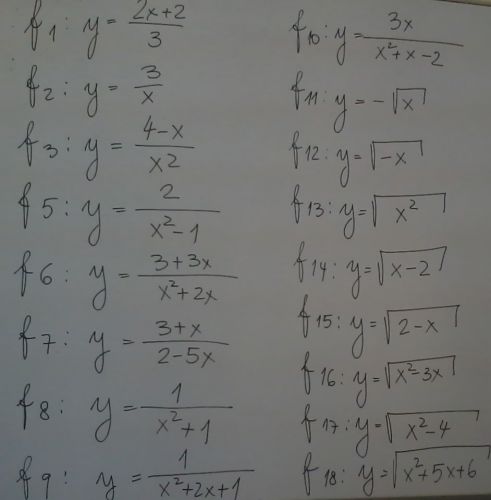 f1: y = (2x+2)/3
f2: y = 3/x
f3: y = (4-x)/x2
f5: y = 2/(x²-1)
f6: y = (3+3x)/(x²+2x)
f7: y = (3+x)/(2-5x)
f8: y = 1/(x²+1)
f9: y = 1/(x²+2x+1)
f10: y = 3x/(x²+x-2)
f11: y = -√x
f12: y = √(-x)
f13: y = √(x²)
f14: y = √(x-2)
f15: y = √(2-x)
f16: y = √(x²-3x)
f17: y = √(x²-4)
f18: y = √(x²+5x+6)